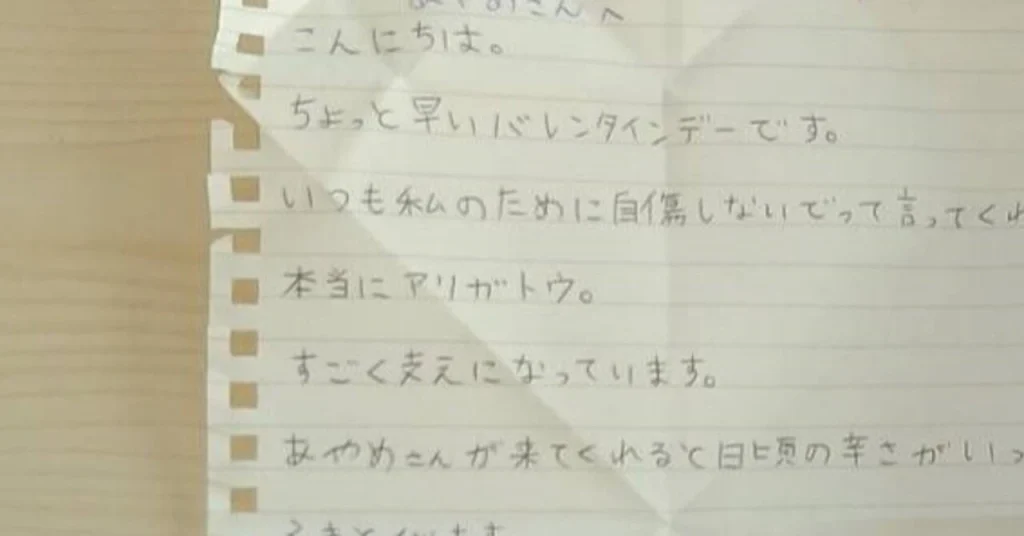 さんへ
こんにちは。
ちょっと早いバレンタインデーです。
いつも私のために自傷しないでって言ってくれ
本当にアリガトウ。
すごく支えになっています。
あやめさんが来てくれると日頃の辛さがいっ